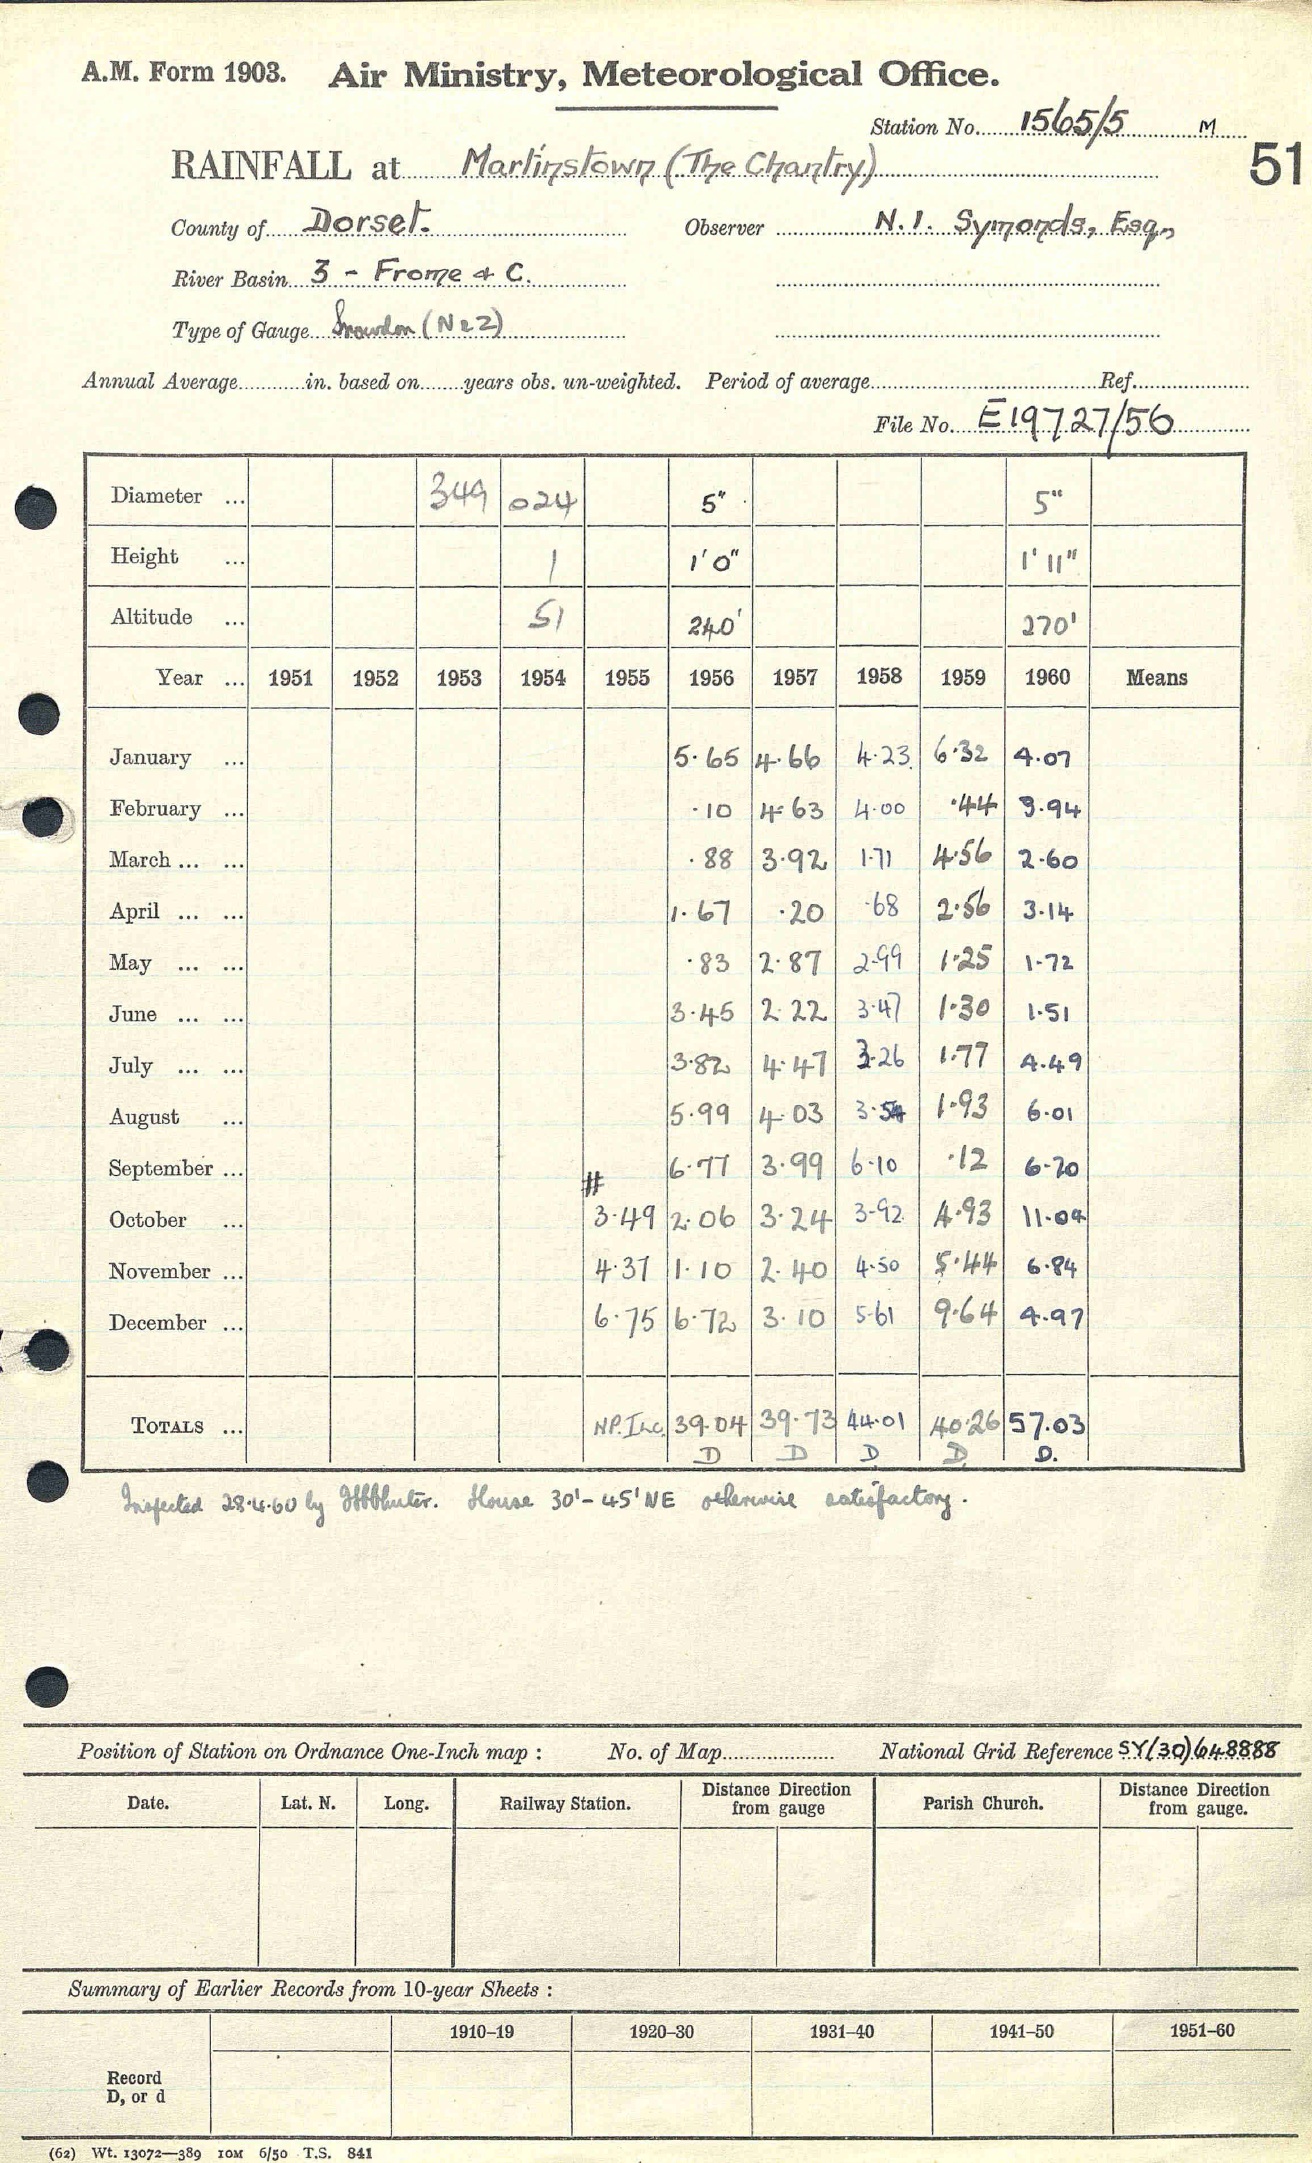 A.M. Form 1903. Air Ministry, Meteorological Office.
Station No. 1565/5 M
RAINFALL at Martinstown (The Chantry)
51
County of Dorset. Observer N.I. Symonds, Esq.,
River Basin 3 - Frome & C.
Type of Gauge Snowdon (No 2)
Annual Average in. based on years obs. un-weighted. Period of average Ref.
File No. E19727/56
Diameter ... 349 024 5" 5"
Height ... 1 1'0" 1'11"
Altitude ... 51 240' 270'
Year ... 1951 1952 1953 1954 1955 1956 1957 1958 1959 1960 Means
January ... 5.65 4.66 4.23 6.32 4.07
February ... .10 4.63 4.00 .44 3.94
March ... ... .88 3.92 1.71 4.56 2.60
April ... ... 1.67 .20 .68 2.56 3.14
May ... ... .83 2.87 2.99 1.25 1.72
June ... ... 3.45 2.22 3.47 1.30 1.51
July ... ... 3.82 4.47 3.26 1.77 4.49
August ... 5.99 4.03 3.54 1.93 6.01
September ... 6.77 3.99 6.10 .12 6.70
#
October ... 3.49 2.06 3.24 3.92 4.93 11.04
November ... 4.37 1.10 2.40 4.50 5.44 6.84
December ... 6.75 6.72 3.10 5.61 9.64 4.97
TOTALS ... NP. Inc. 39.04 39.73 44.01 40.26 57.03
D D D D D.
Inspected 28.4.60 by House 30'-45' NE otherwise satisfactory.
Position of Station on Ordnance One-Inch map : No. of Map National Grid Reference SY(30)648888
Date. Lat. N. Long. Railway Station. Distance Direction from gauge Parish Church. Distance Direction from gauge.
Summary of Earlier Records from 10-year Sheets :
1910–19 1920–30 1931–40 1941–50 1951–60
Record
D, or d
(62) Wt. 13072—389 10M 6/50 T.S. 841